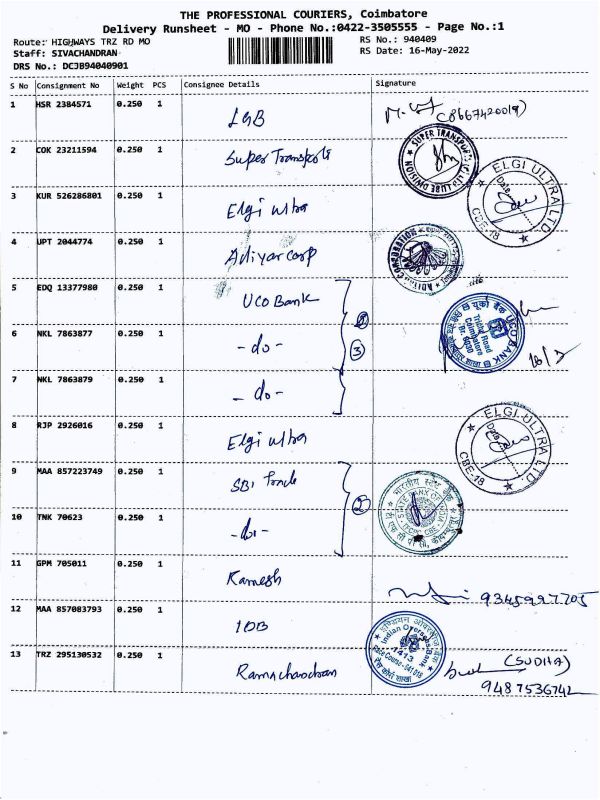 THE PROFESSIONAL COURIERS, Coimbatore
Delivery Runsheet - MO - Phone No.:0422-3505555 - Page No.:1
Route: HIGHWAYS TRZ RD MO
RS No.: 940409
Staff: SIVACHANDRAN
RS Date: 16-May-2022
DRS No.: DCJB94040901
S No Consignment No Weight PCS Consignee Details Signature
1 HSR 2384571 0.250 1 LGB (8667420019)
2 COK 23211594 0.250 1 Super Transports
SUPER TRANSPORTS
3 KUR 526286801 0.250 1 Elgi ultra
ELGI ULTRA LTD. Date CBE-18
4 UPT 2044774 0.250 1 Adiyar corp
5 EDQ 13377980 0.250 1 UCO Bank
6 NKL 7863877 0.250 1 -do- 3
यूको बैंक UCO BANK Trichy Road Coimbatore
7 NKL 7863879 0.250 1 -do-
8 RJP 2926016 0.250 1 Elgi ultra
ELGI ULTRA LTD. Date CBE-18
9 MAA 857223749 0.250 1 SBI 2
भारतीय स्टेट बैंक STATE BANK OF INDIA
10 TNK 70623 0.250 1 -do-
11 GPM 705011 0.250 1 Ramesh 9345997705
12 MAA 857083793 0.250 1 IOB
इण्डियन ओवरसीज़ बैंक Indian Overseas Bank 1413 Race Course - 641 018
13 TRZ 295130532 0.250 1 Ramachandran (SUDHA)
9487536742